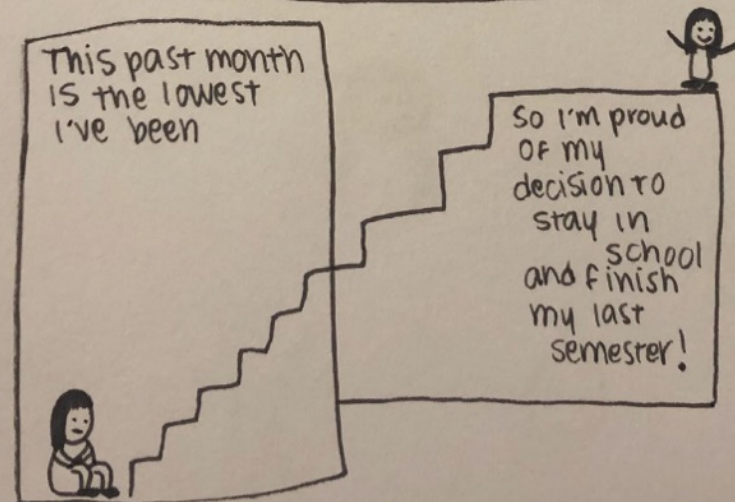 This past month
is the lowest
I've been
So I'm proud
of my
decision to
stay in
school
and finish
my last
semester!